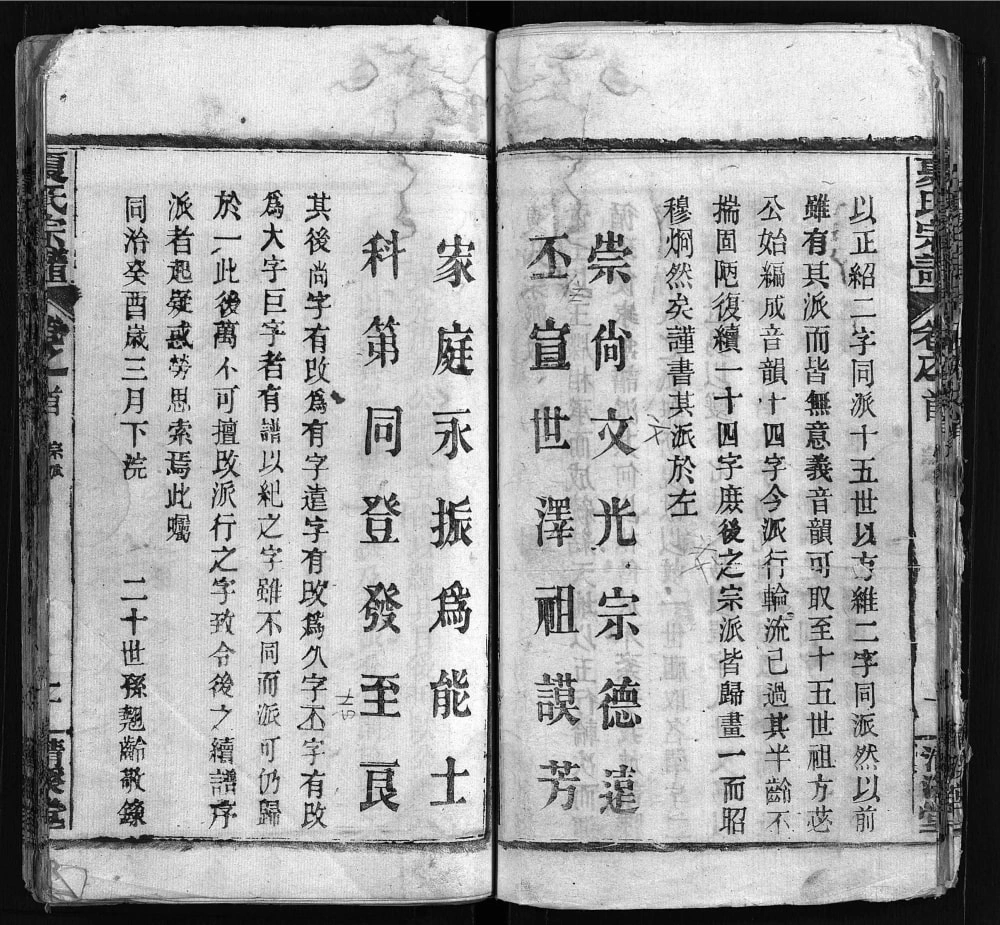 以正紹二字同派十五世以方維二字同派然以前
雖有其派而皆無意義音韻可取至十五世祖方苾
公始編成音韻十四字今派行輪流已過其半齡不
揣固陋復續一十四字庶後之宗派皆歸畫一而昭
穆炯然矣謹書其派於左
崇尙文光宗德遠
丕宣世澤祖謨芳
家庭永振為能士
科第同登發至良
其後尚字有改為有字遠字有改為久字丕字有改
為大字巨字者有譜以紀之字雖不同而派可仍歸
於一此後萬不可擅改派行之字致令後之續譜序
派者起疑惑勞思索焉此囑
同治癸酉歲三月下浣 二十世孫 齡敬錄
夏氏宗譜 卷之首